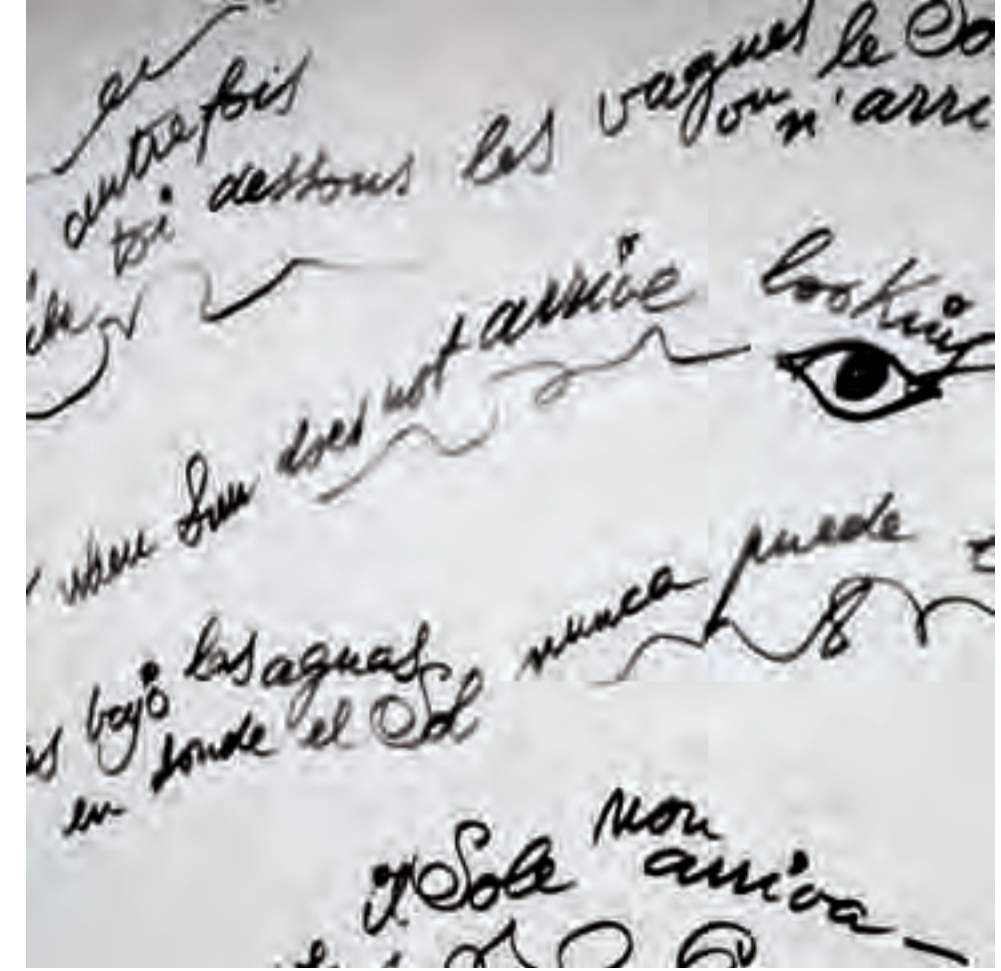 autrefois
toi dessous les vagues le So
ou n'arri
when Sun does not arrive
looking
bajo las aguas
en donde el Sol
nunca puede
Il Sole non
arriva